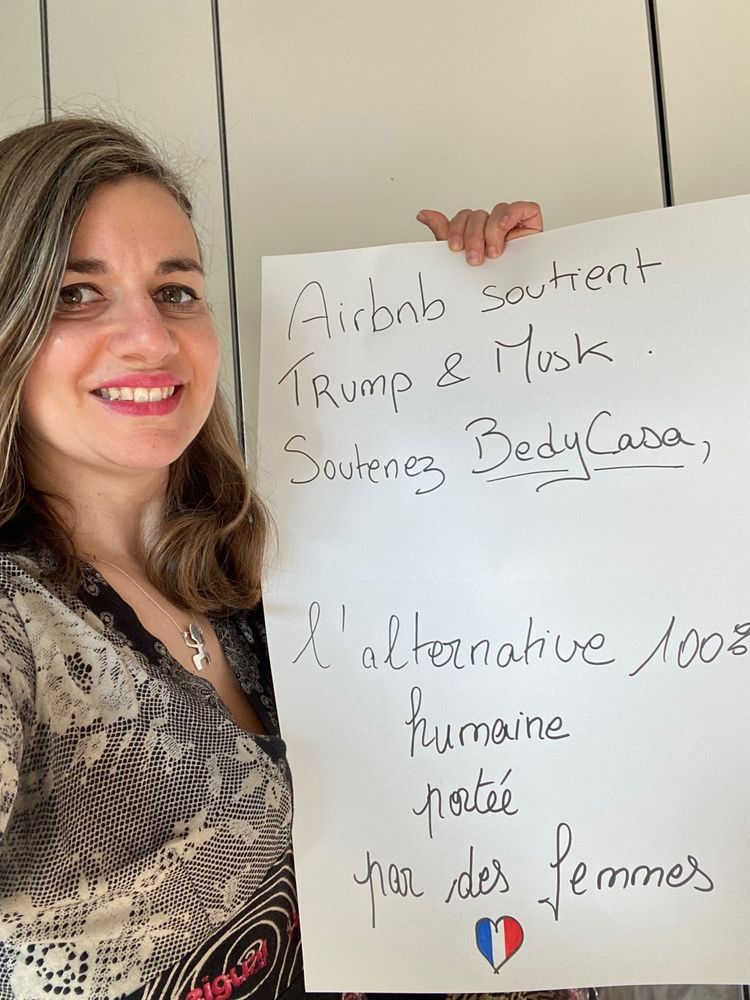 Airbnb soutient
Trump & Musk.
Soutenez BedyCasa,
l'alternative 100%
humaine
portée
par des femmes